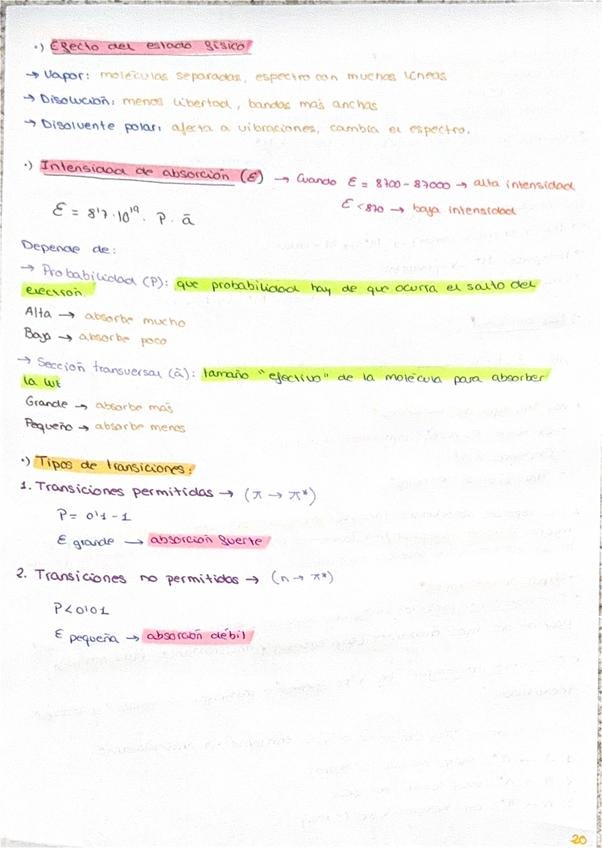 ·) Efecto del estado físico
→ Vapor: moléculas separadas, espectro con muchas líneas
→ Disolución: menos libertad, bandas más anchas
→ Disolvente polar: afecta a vibraciones, cambia el espectro.
·) Intensidad de absorción (ε) → Cuando ε = 8700 - 87000 → alta intensidad
ε < 870 → baja intensidad
ε = 8'7 · 10¹⁹ · P · ā
Depende de:
→ Probabilidad (P): que probabilidad hay de que ocurra el salto del
electrón.
Alta → absorbe mucho
Baja → absorbe poco
→ Sección transversal (ā): tamaño "efectivo" de la molécula para absorber
la luz
Grande → absorbe más
Pequeño → absorbe menos
·) Tipos de transiciones:
1. Transiciones permitidas → (π → π*)
P = 0'1 - 1
ε grande → absorción fuerte
2. Transiciones no permitidas → (n → π*)
P < 0'01
ε pequeña → absorción débil
20